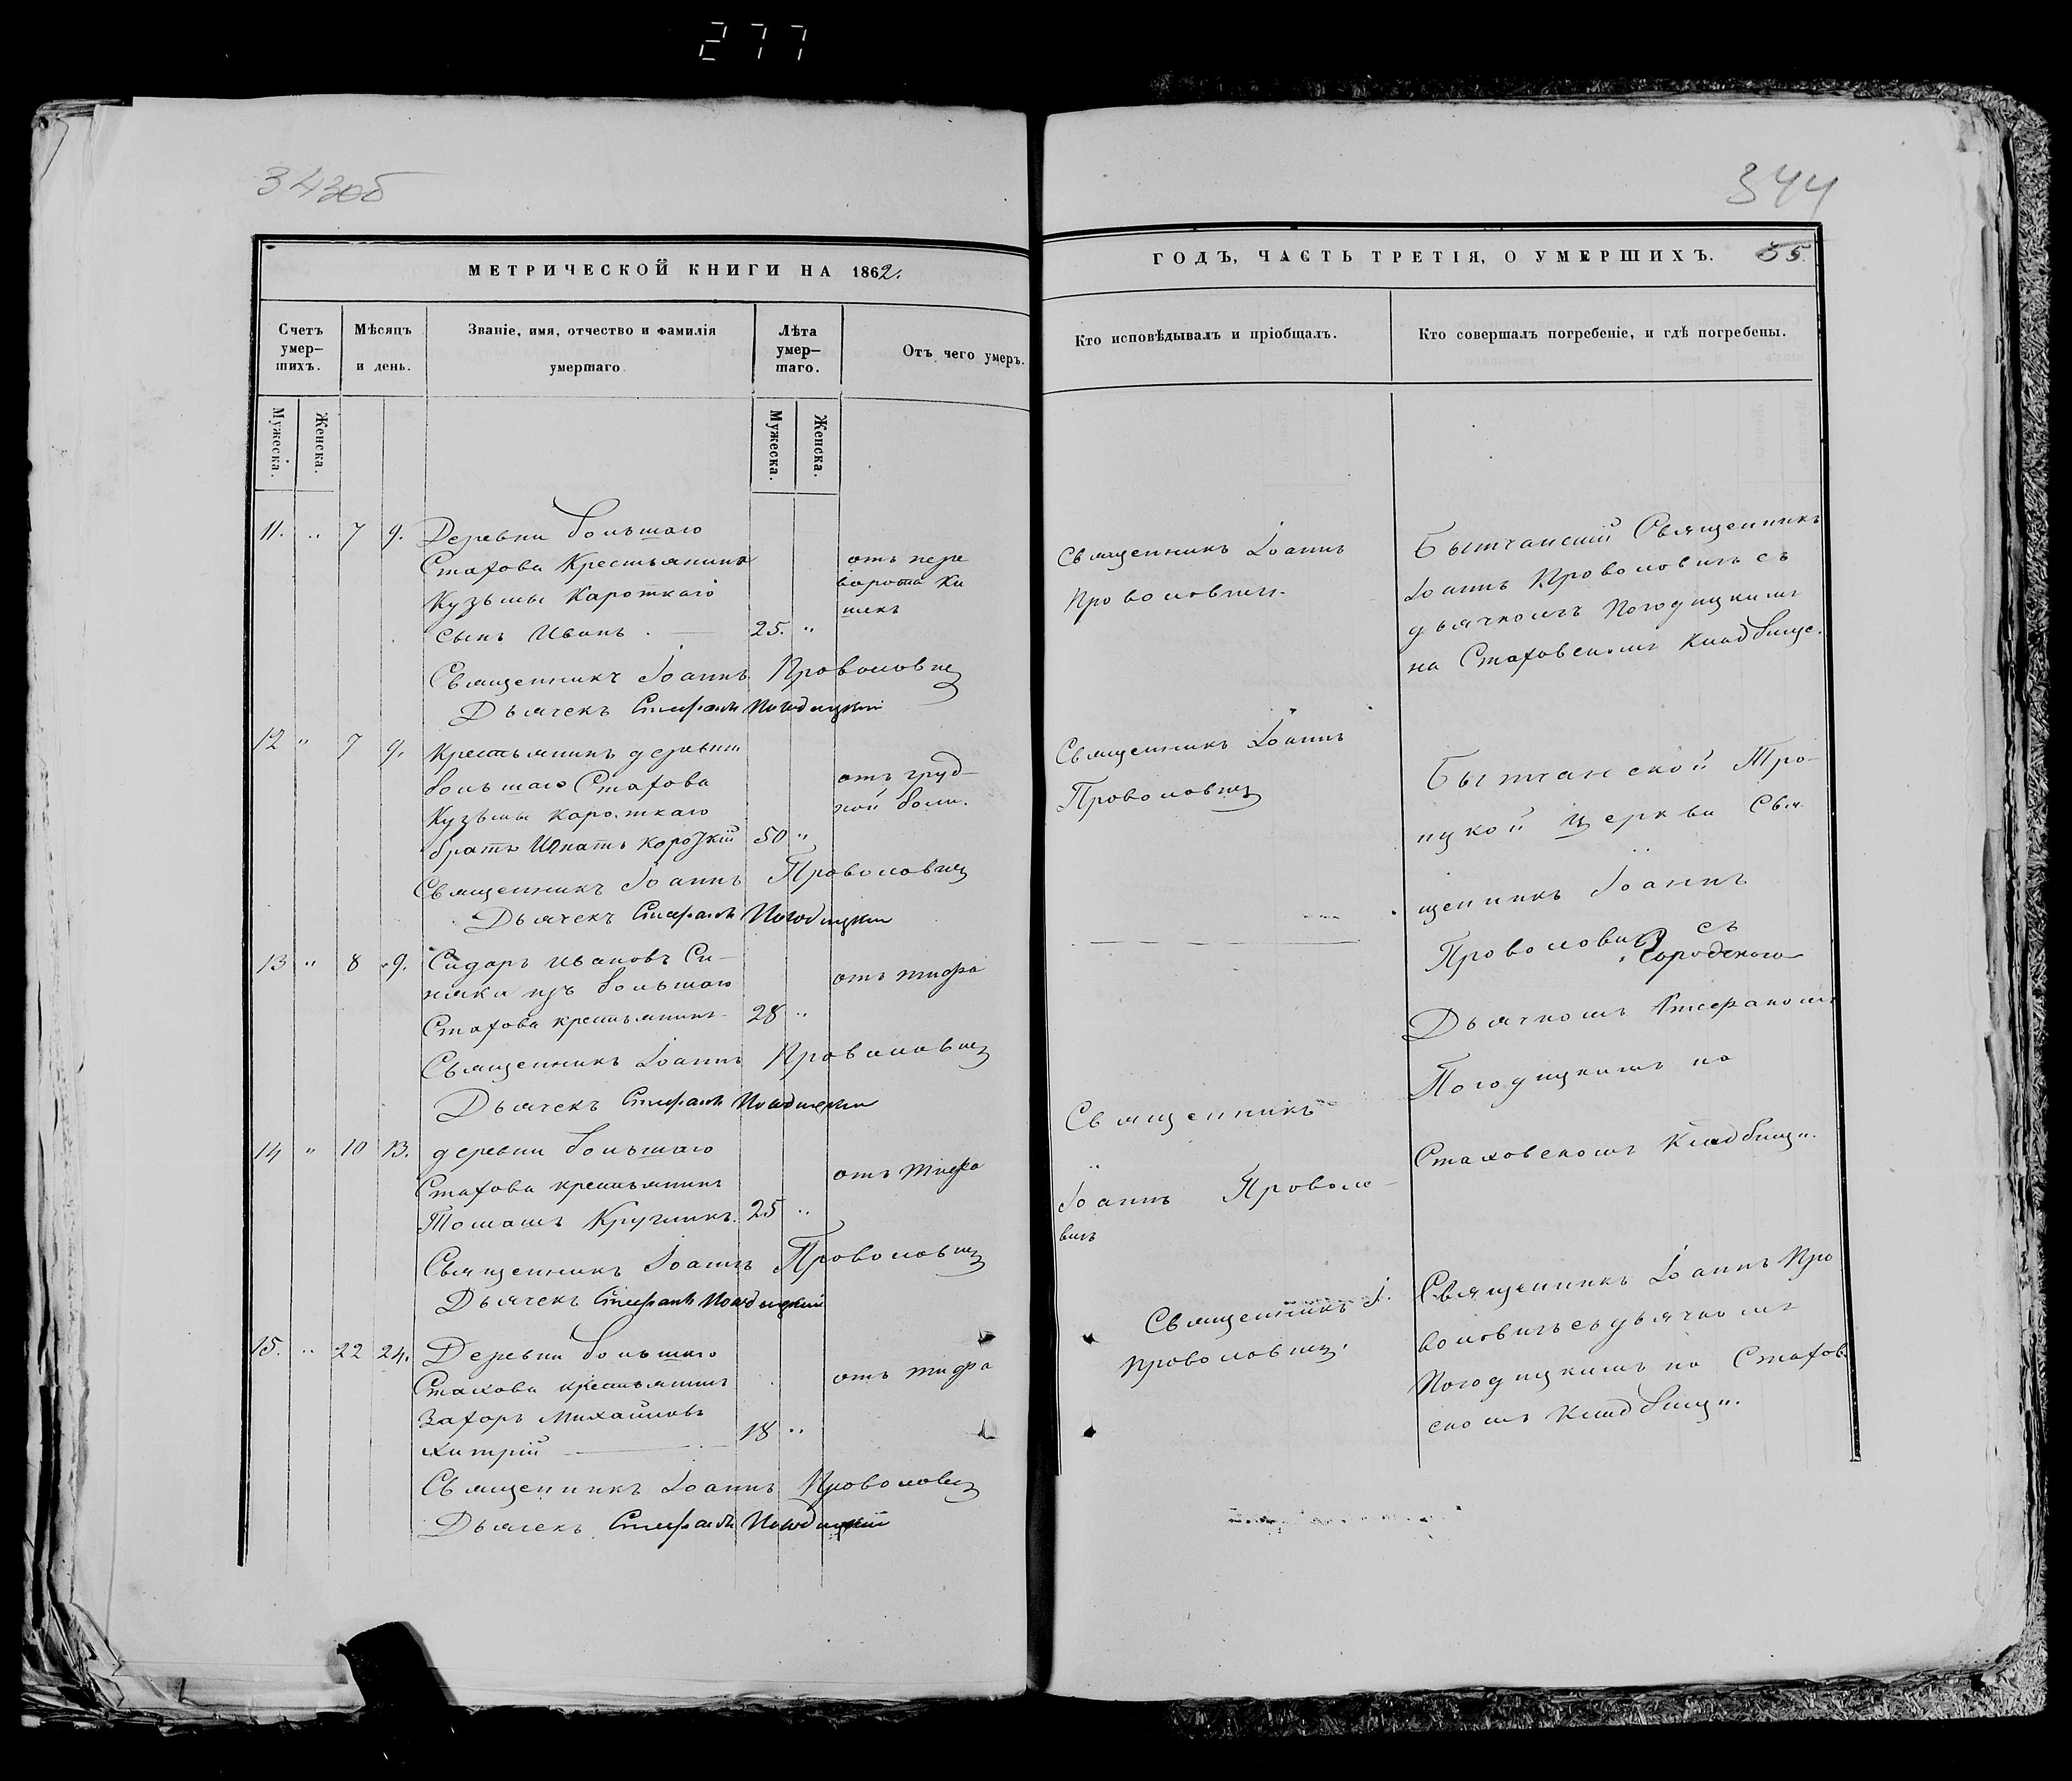 277
343об
344
МЕТРИЧЕСКОЙ КНИГИ НА 1862.
Счетъ умер—шихъ.
Мѣсяцъ и день.
Званіе, имя, отчество и фамилія умершаго
Лѣта умер—шаго.
Отъ чего умеръ.
Мужеска.
Женска.
Мужеска.
Женска.
11. " 7 9. Деревни большаго
Стахова Крестьянина
отъ пере
Кузьмы Кароткаго
ворота Ки
шекъ
сынъ Иванъ . — 25. "
Священникъ Іоаннъ Проволовичъ
Дьячекъ Стефанъ Погодицкій
12 " 7 9. Крестьянинъ деревни
большаго Стахова
отъ груд-
Кузьмы Кароткаго
ной боли.
братъ Игнатъ Короткій 50 "
Священникъ Іоаннъ Проволовичъ
Дьячекъ Стефанъ Погодицкій
13 " 8 9. Сидоръ Ивановъ Си-
няки изъ большаго
отъ тифа
Стахова крестьянинъ 28 "
Священникъ Іоаннъ Проволовичъ
Дьячекъ Стефанъ Погодицкій
14 " 10 13. деревни большаго
Стахова крестьянинъ
отъ тифа
Томашъ Кругликъ. 25 "
Священникъ Іоаннъ Проволовичъ
Дьячекъ Стефанъ Погодицкій
15. " 22 24. Деревни большаго
Стахова крестьянинъ
отъ тифа
Захоръ Михайловъ
Хитрій — 18 "
Священникъ Іоаннъ Проволовичъ
Дьячекъ Стефанъ Погодицкій
ГОДЪ, ЧАСТЬ ТРЕТІЯ, О УМЕРШИХЪ. 35.
Кто исповѣдывалъ и пріобщалъ.
Кто совершалъ погребеніе, и гдѣ погребены.
Священникъ Іоаннъ
Проволовичъ
Бытчанскій Священникъ
Іоаннъ Проволовичъ съ
дьячкомъ Погодицкимъ
на Стаховскомъ Кладбище.
Священникъ Іоаннъ
Проволовичъ
Бытчанской Тро-
ицкой Церкви Свя
щенникъ Іоаннъ
Проволовичъ съ
Дьячкомъ Стефаномъ
Погодицкимъ на
Стаховскомъ Кладбищи.
Священникъ
Іоаннъ Проволо-
вичъ
Священникъ І.
Проволовичъ.
Священникъ Іоаннъ Про
воловичъ съ дьячкомъ
Погодицкимъ на Стахов
скомъ Кладбищи.